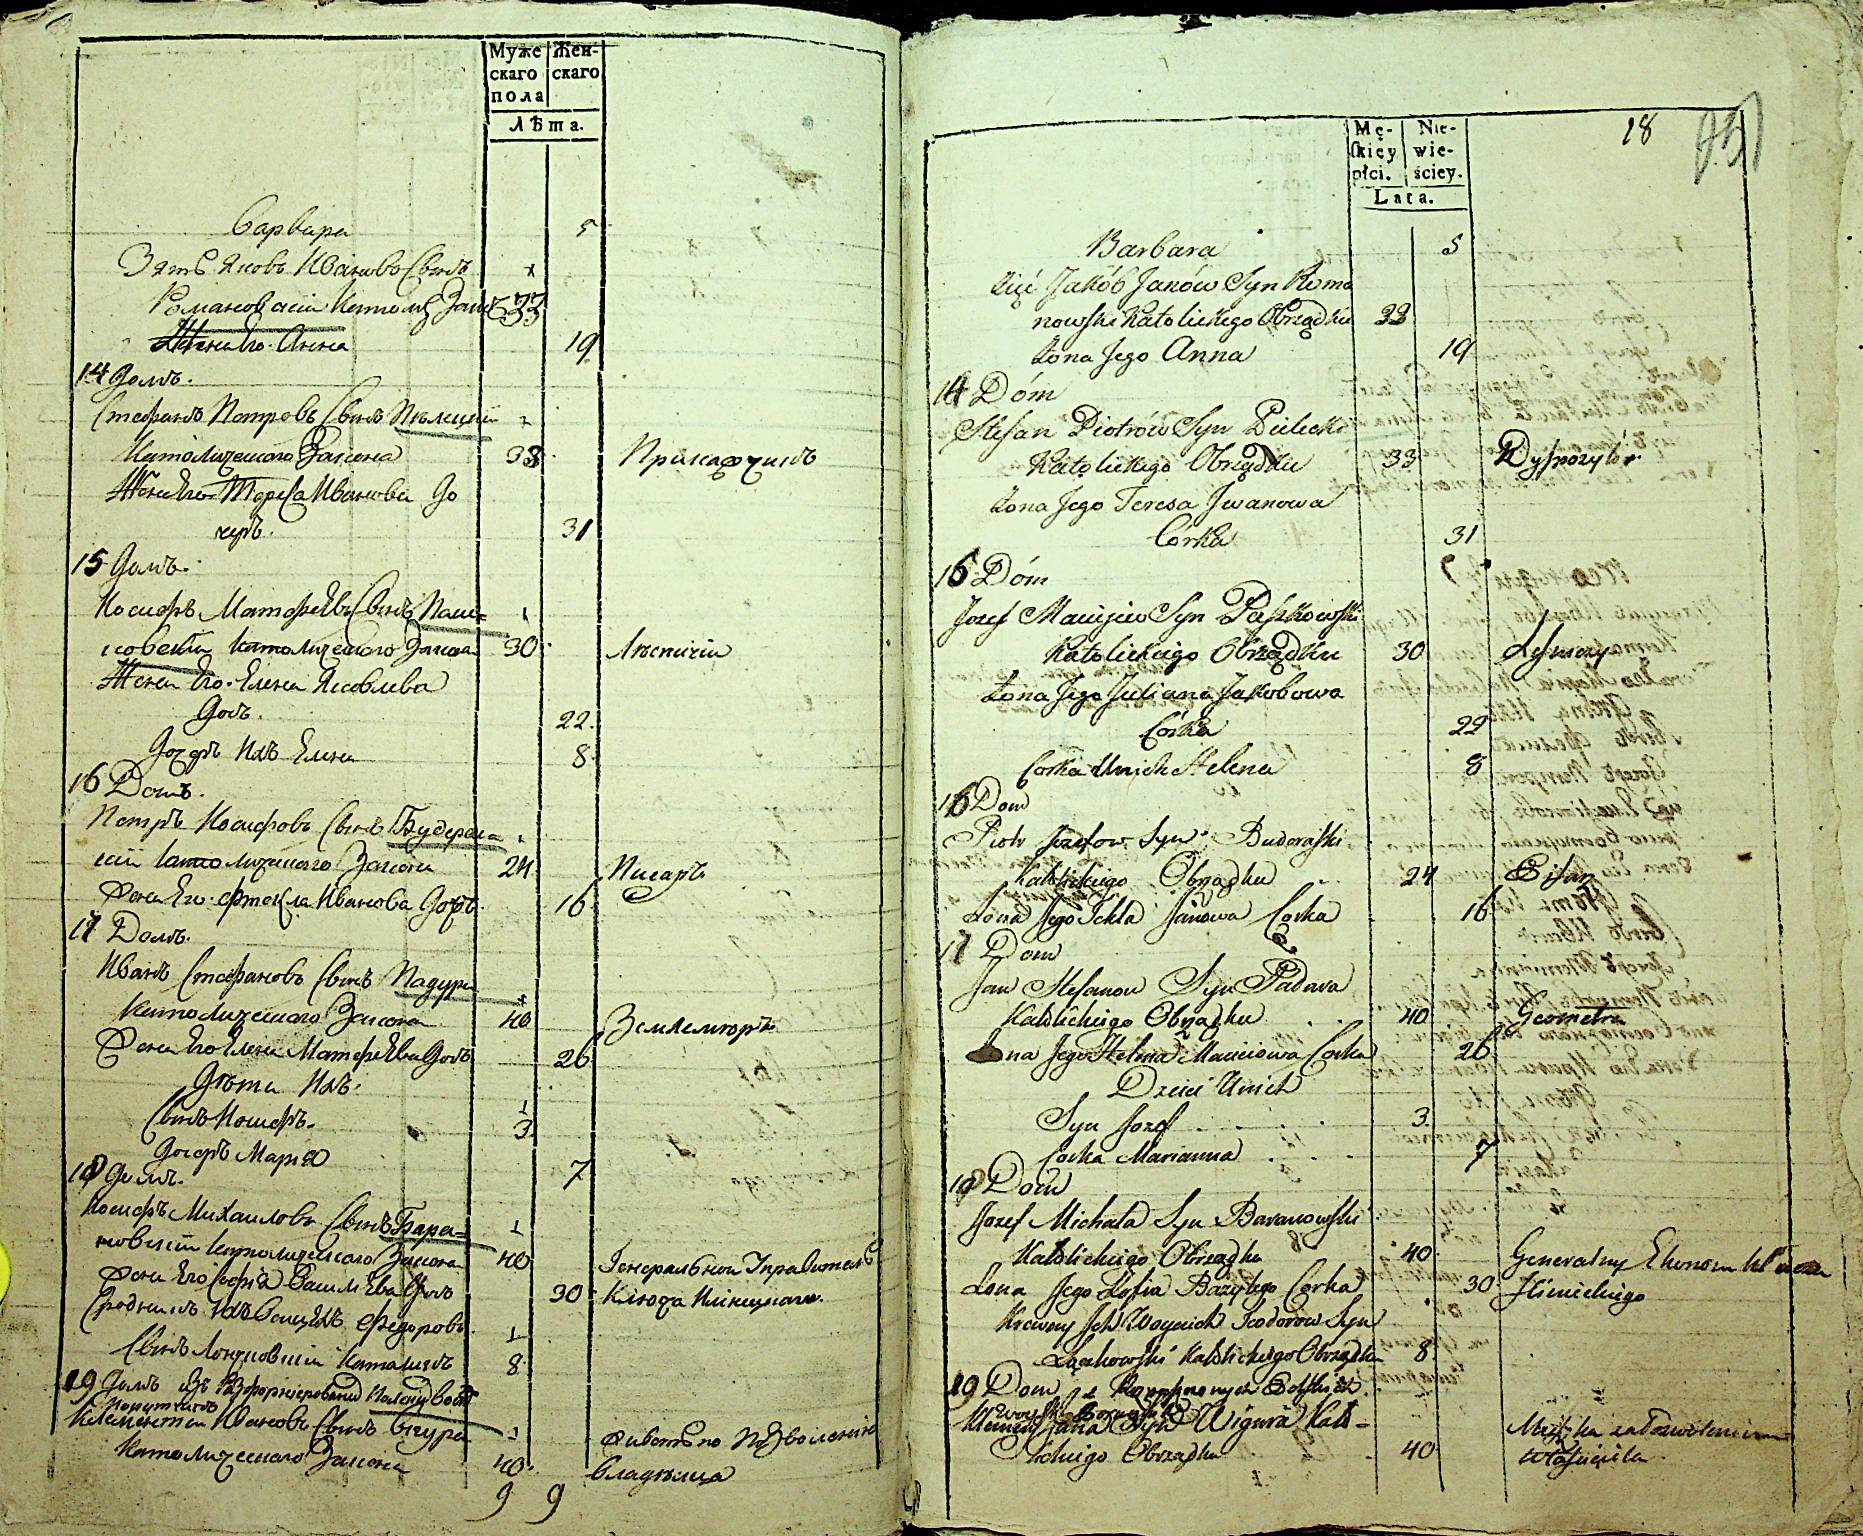 Муже скаго пола
Жен- скаго
Лѣта.
Варвара 5
Зять Яковъ Ивановъ Сынъ
Романовскій Католиц Закон 33
Жена Его Анна 19
14 Домъ.
Стефанъ Петровъ Сынъ Пѣлецкій
Католическаго Закона 33 Прикащикъ
Жена Его Тереса Иванова До
черь. 31
15 Домъ.
Иосифъ Матфѣевъ Сынъ Паш=
ковскій Католическаго Закона 30 Лѣсничій
Жена Его Елена Яковлева
Дочь. 22
Дочерь Ихъ Елена 8
16 Домъ.
Петръ Иосифовъ Сынъ Будерас
кій Католическаго Закона 24 Писарь
Жена Его Фтекла Иванова Дочь 16
17 Домъ.
Иванъ Стефановъ Сынъ Падура
Католическаго Закона 40 Землемѣръ
Жена Его Елена Матфѣева Дочь 26
Дѣти Ихъ.
Сынъ Иосифъ. 3
Дочерь Мария 7
18 Домъ.
Иосифъ Михаиловъ Сынъ Бара=
новскій Католическаго Закона 40 Генеральной Управитель
Жена Его Софія Василѣва Дочь 30 Ключа Илинецкаго.
Сродникъ Ихъ Федоровъ
Сынъ Католикъ 8
19 Домъ изъ
Климентій Ивановъ Сынъ Вигура Живетъ по Позволенію
Католическаго Закона 40 Владѣльца
9 9
18
Mę- skiey płci.
Nie- wie- ściey.
Lata.
Barbara 5
Zięć Jakób Janów Syn Roma
nowski Katolickiego Obrządku 33
Żona Jego Anna 19
14 Dóm
Stefan Piotrów Syn Pielecki
Katolickiego Obrządku 33 Dyspozytór
Żona Jego Teresa Jwanowa
Córka 31
15 Dóm
Jozef Maciejew Syn Paszkowski
Katolickiego Obrządku 30 Leśniczy
Żona Jego Juliana Jakóbowa
Córka 22
Corka Unich Helena 8
16 Dom
Piotr Jozefow Syn Budoraski
Katolickiego Obrządku 24 Pisarz
Żona Jego Tekla Janowa Corka 16
17 Dom
Jan Stefanow Syn Padura
Katolickiego Obrządku 40 Geometra
Żona Jego Helena Maciejowa Corka 26
Dzieci Unich
Syn Jozef 3
Corka Marianna 7
18 Dom
Jozef Michała Syn Baranowski
Katolickiego Obrządku 40 Generalny Ekonom Klucza
Żona Jego Zofia Bazylego Corka 30 Ilinieckiego
Krewny Ich Woyciech Teodorow Syn
Łączkowski Katolickiego Obrządku 8
19 Dom
Klemens Jana Syn Wigura Kato-
lickiego Obrządku 40 Mieszka za dozwoleniem
Właściciela